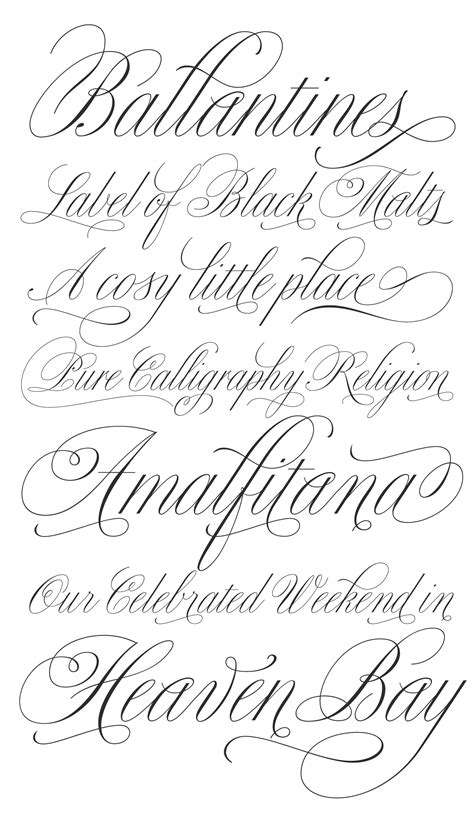 Ballantines
Label of Black Malts
A cosy little place
Pure Calligraphy Religion
Amalfitana
Our Celebrated Weekend in
Heaven Bay